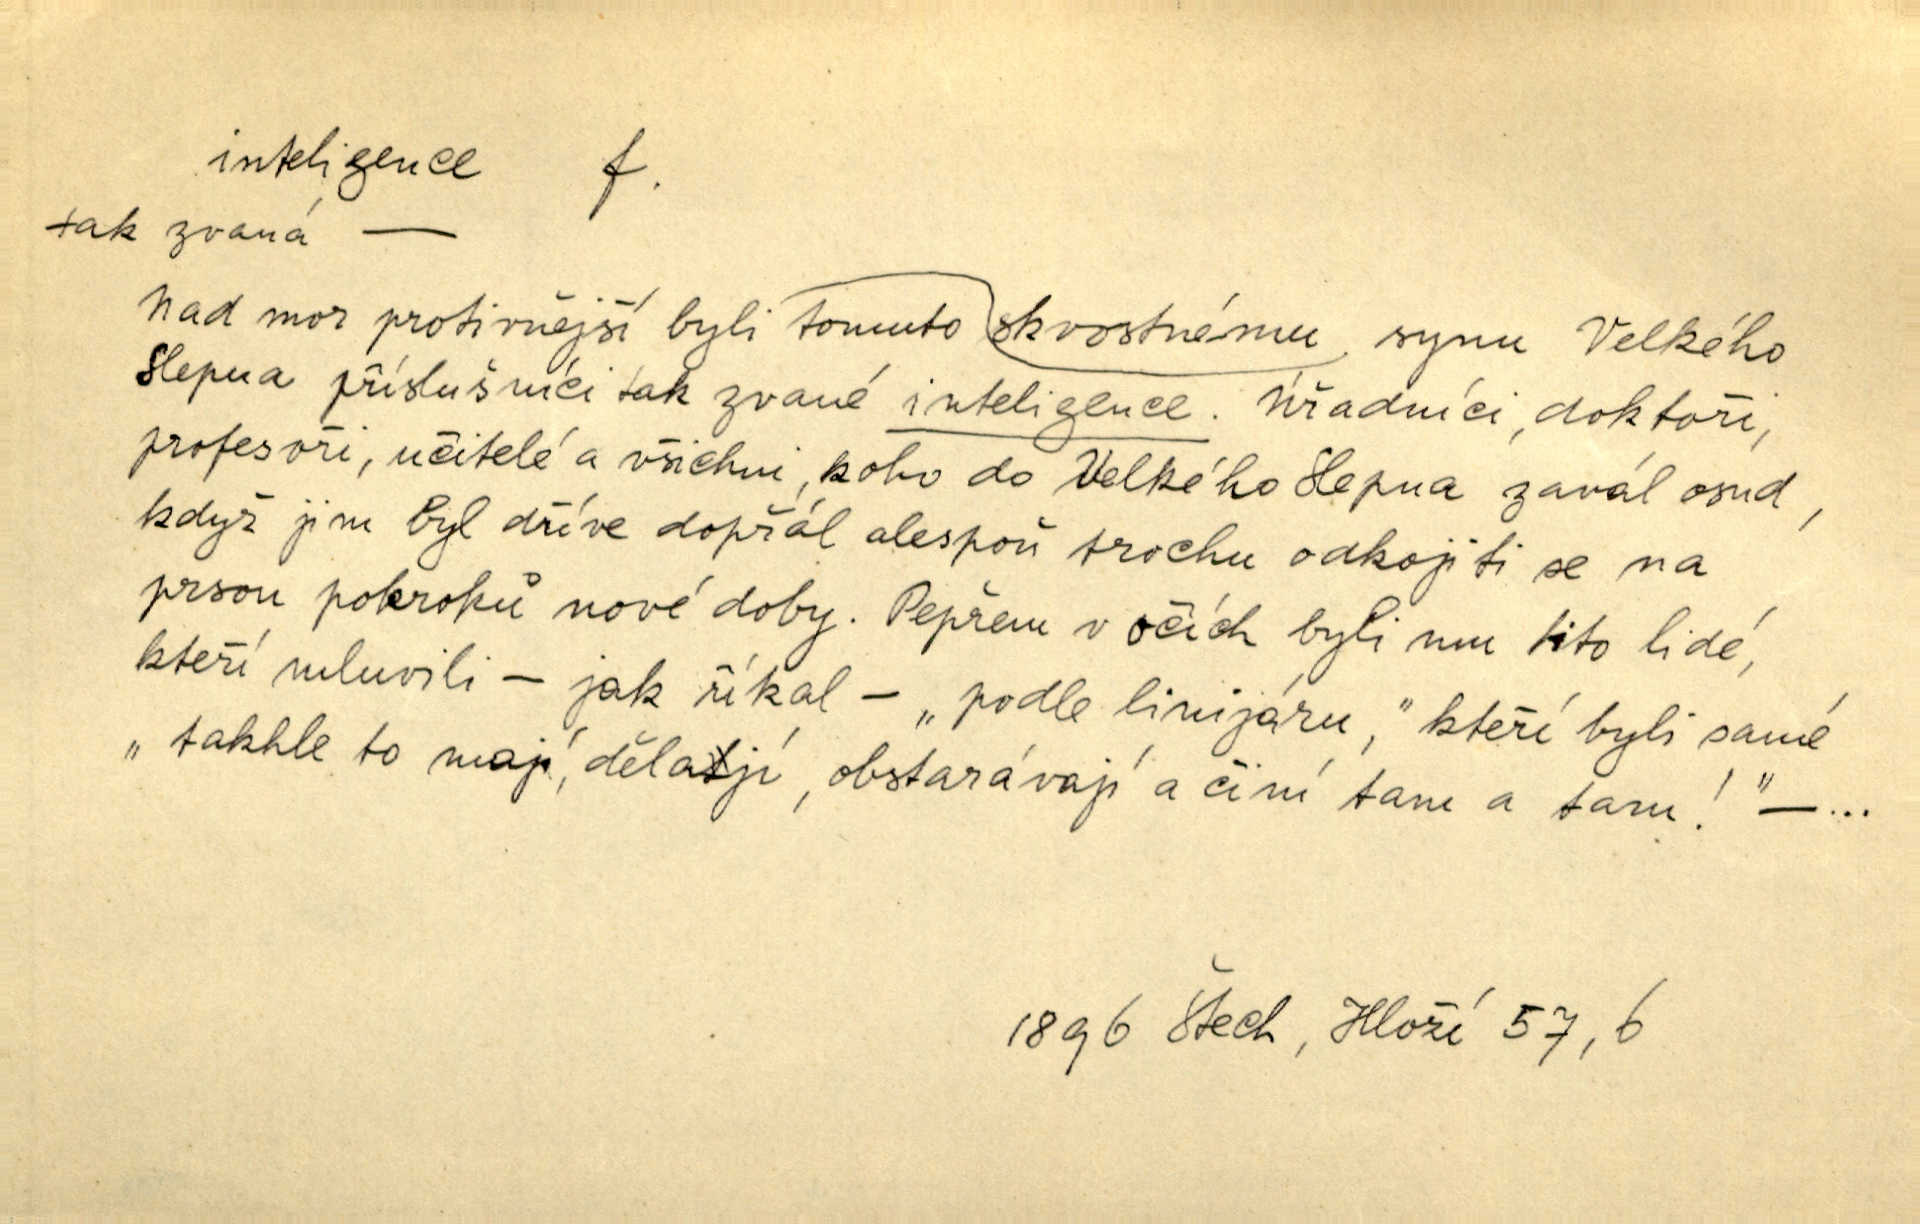 inteligence f.
tak zvaná —
Nad mor protivnější byli tomuto skvostnému synu Velkého
Slepna příslušníci tak zvané inteligence. Úřadníci, doktoři,
profesoři, učitelé a všichni, koho do Velkého Slepna zavál osud,
když jim byl dříve dopřál alespoň trochu odkojiti se na
prsou pokroků nové doby. Pepřem v očích byli mu tito lidé,
kteří mluvili – jak říkal – „podle linijáru," kteří byli samé
„takhle to mají, dělají, obstarávají a činí tam a tam!" – ...
1896 Štech, Hloží 57, 6